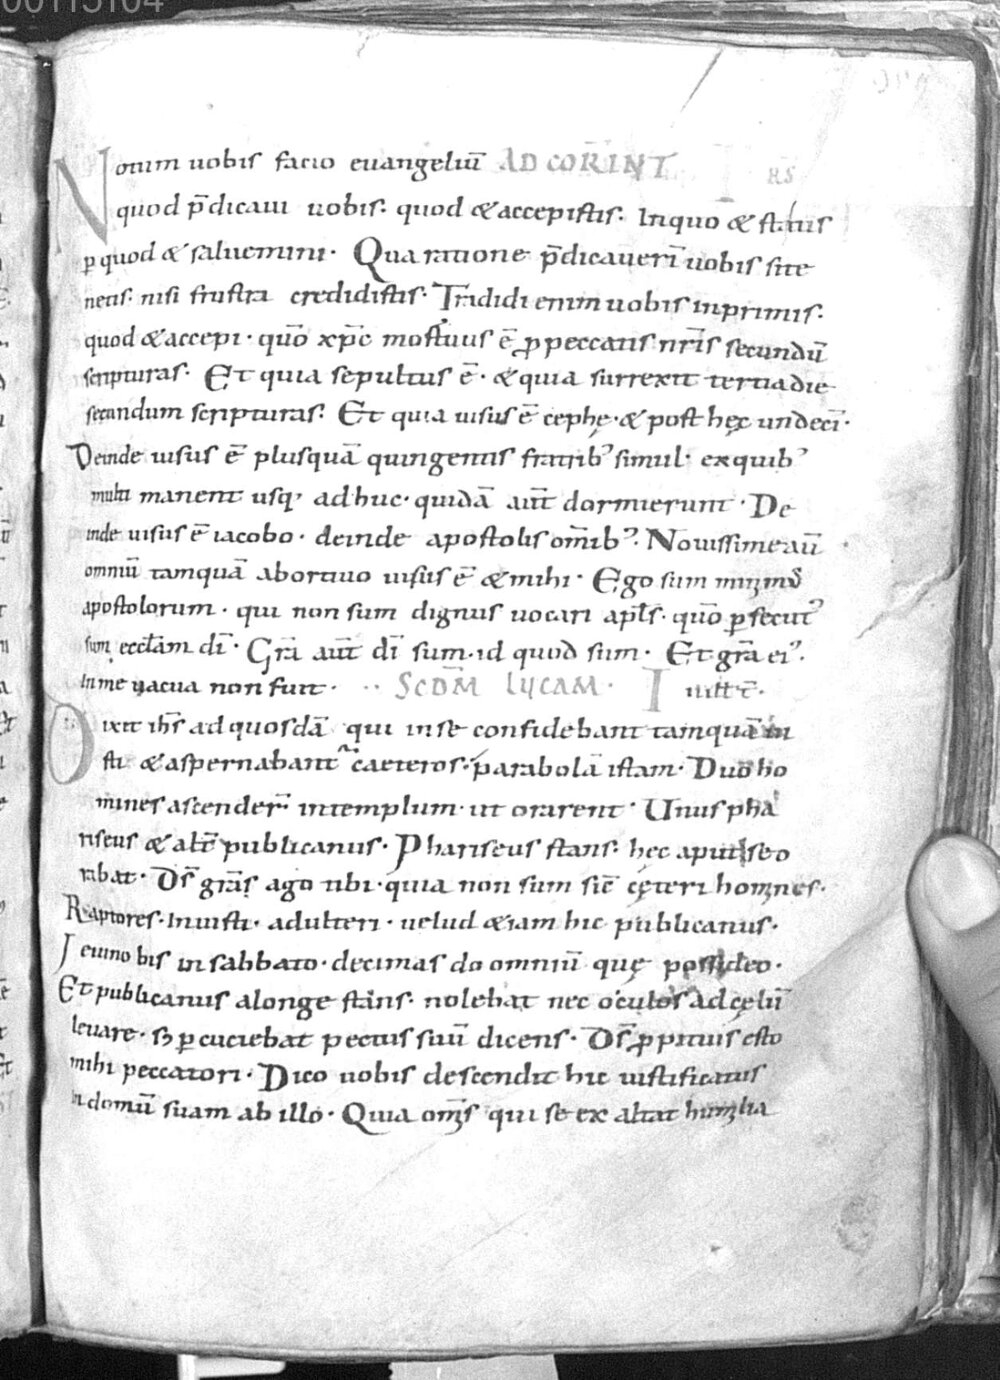 00115104
Notum uobis facio euangeliū AD CORINT
quod p̄dicaui uobis. quod &accepistis. Inquo & statis
ꝑ quod & saluemini. Qua ratione p̄dicauerī uobis site
netis. nisi frustra credidistis. Tradidi enim uobis inprimis.
quod &accepi. quō xp̄c mortuus ē ꝓ peccatis nr̄is secundū
scripturas. Et quia sepultus ē. & quia surrexit tertia die
secundum scripturas. Et quia uisus ē cephę. & post hęc undecī.
Deinde uisus ē plusquā quingentis fratrib' simul. exquib'
multi manent usq' adhuc. quidā aut̄ dormierunt. De
inde uisus ē iacobo. deinde apostolis om̄ib'. Nouissime aū
omniū tamquā abortiuo uisus ē &mihi. Ego sum
apostolorum. qui non sum dignus uocari apl̄s. quō ꝑsecut'
sum eccl̄am dī. Gr̄a aut̄ dī sum. id quod sum. Et gr̄a ei'.
In me uacua non fuit. SCDM̄ LUCAM. I
Dixit ih̄s ad quosdā qui in se confidebant tamquā iu
sti &aspernabant caeteros. parabolā istam. Duo ho
mines ascender̄ intemplum. ut orarent. Unus pha
riseus & alt̄ publicanus. Phariseus stans. hec aput se o
rabat. Ds̄ gr̄as ago tibi. quia non sum sic̄ cęteri homines.
Raptores. Iniusti. adulteri. uelud &iam hic publicanus.
Ieiuno bis in sabbato. decimas do omniū quę possideo.
Et publicanus alonge stans. nolebat nec oculos ad cęlū
leuare. sꝫ ꝑcuciebat pectus suū dicens. Ds̄ ꝓpitius esto
mihi peccatori. Dico uobis descendit hic iustificatus
in domū suam ab illo. Quia om̄s qui se exaltat humilia